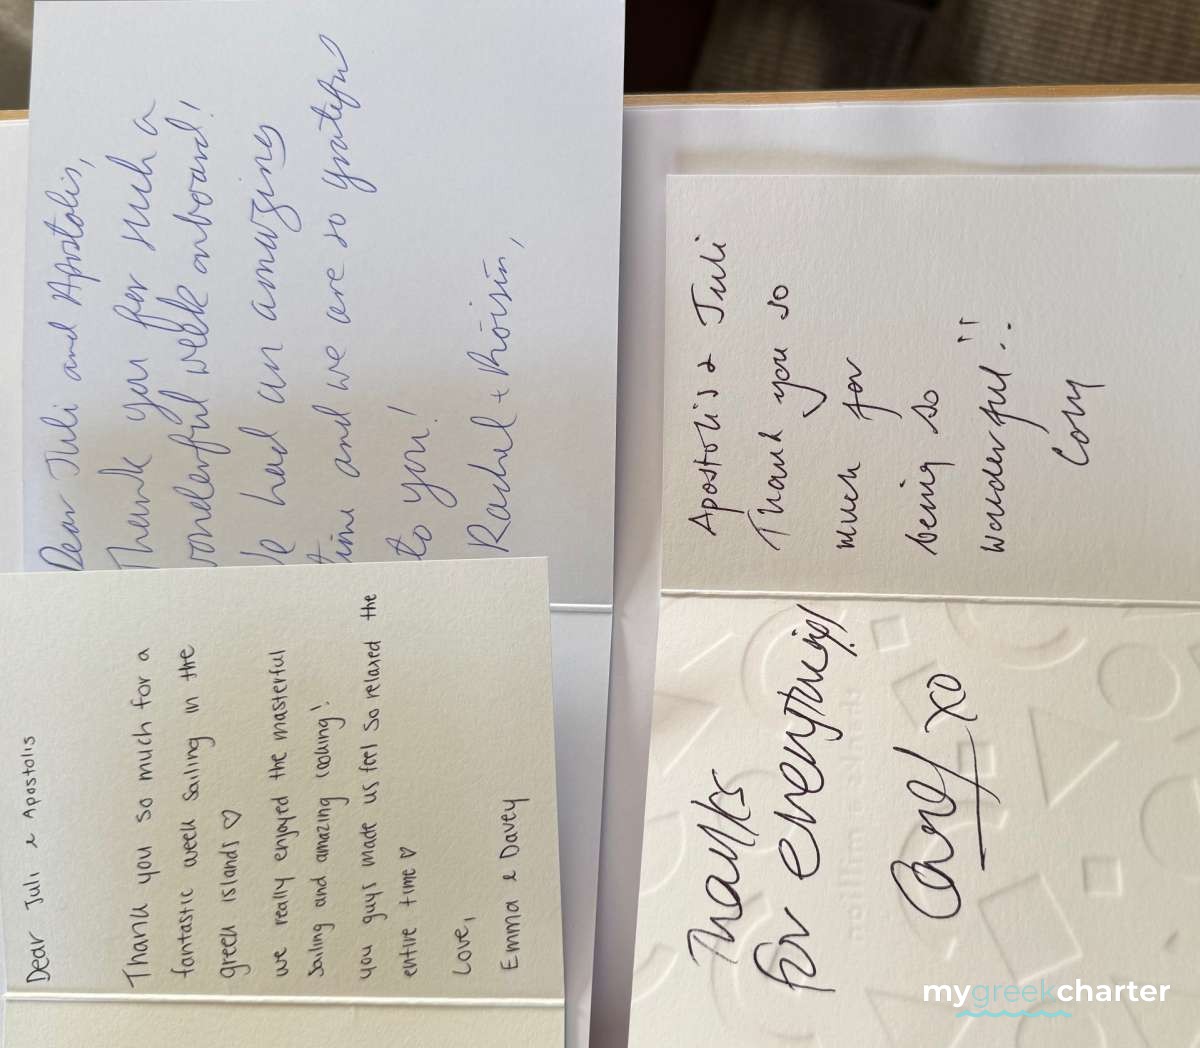 Dear Juli and Apostolis,
Thank you for such a
wonderful week onboard!
We had an amazing
time and we are so grateful
to you!
Rachel + Róisín,
Dear Juli & Apostolis
Thank you so much for a
fantastic week sailing in the
greek islands ♡
we really enjoyed the masterful
sailing and amazing cooking!
you guys made us feel so relaxed the
entire time ♡
Love,
Emma & Davey
Apostolis & Juli
Thank you so
much for
being so
wonderful!!
Thanks
for everything!
xo
mygreekcharter